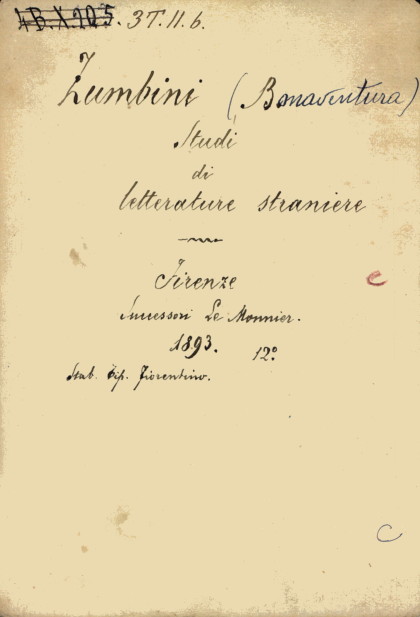 4B.X.125. 37.11.6.
Zumbini (Bonaventura)
Studi
di
letterature straniere
Firenze
Successori Le Monnier.
1893. 12º
Stab. tip. Fiorentino.
C
C